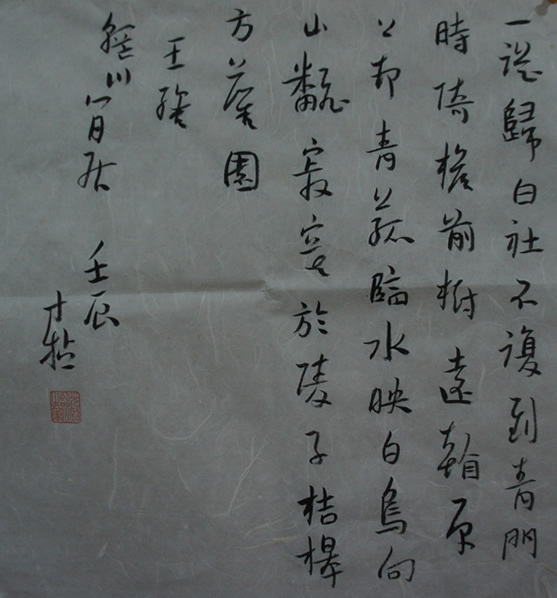 一從歸白社不復到青門
時倚檐前樹遠看原
上邨青菰臨水映白鳥向
山飜寂寞於陵子桔槔
方灌園
王維
輞川閒居 壬辰